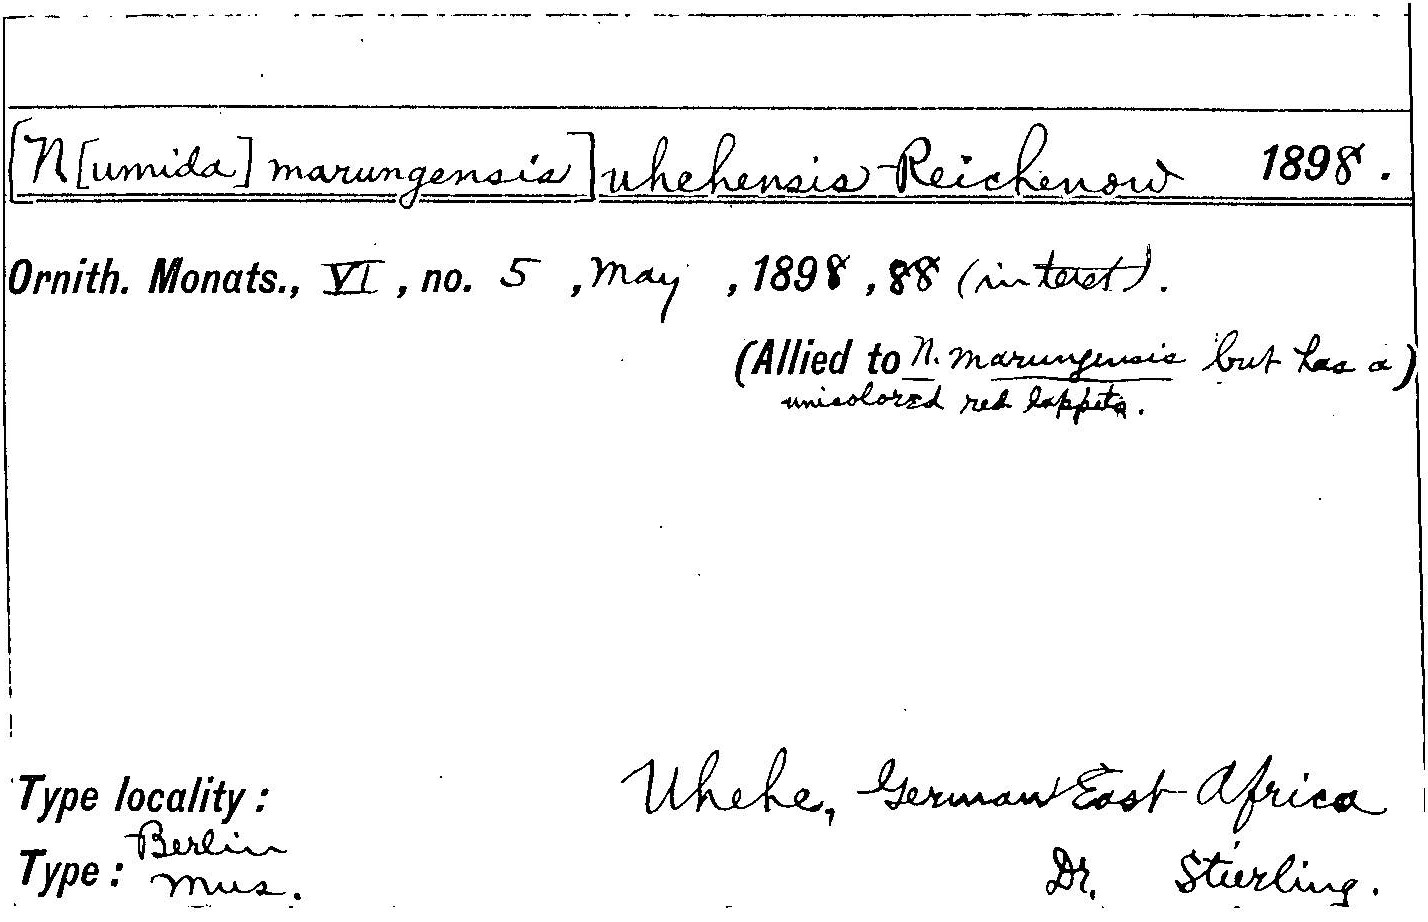 [N[umida] marungensis] uhehensis Reichenow 1898.
Ornith. Monats., VI, no. 5, May, 1898, 88 (in text).
(Allied to N. marungensis but has a)
unicolored red lappets.
Type locality: Uhehe, German East Africa
Type: Berlin Mus. Dr. Stierling.